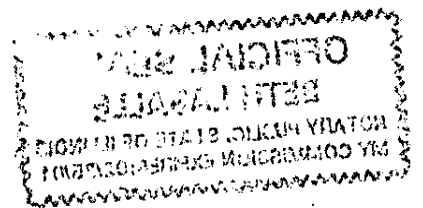 OFFICIAL SEAL
BETH LASALLE
NOTARY PUBLIC, STATE OF ILLINOIS
MY COMMISSION EXPIRES